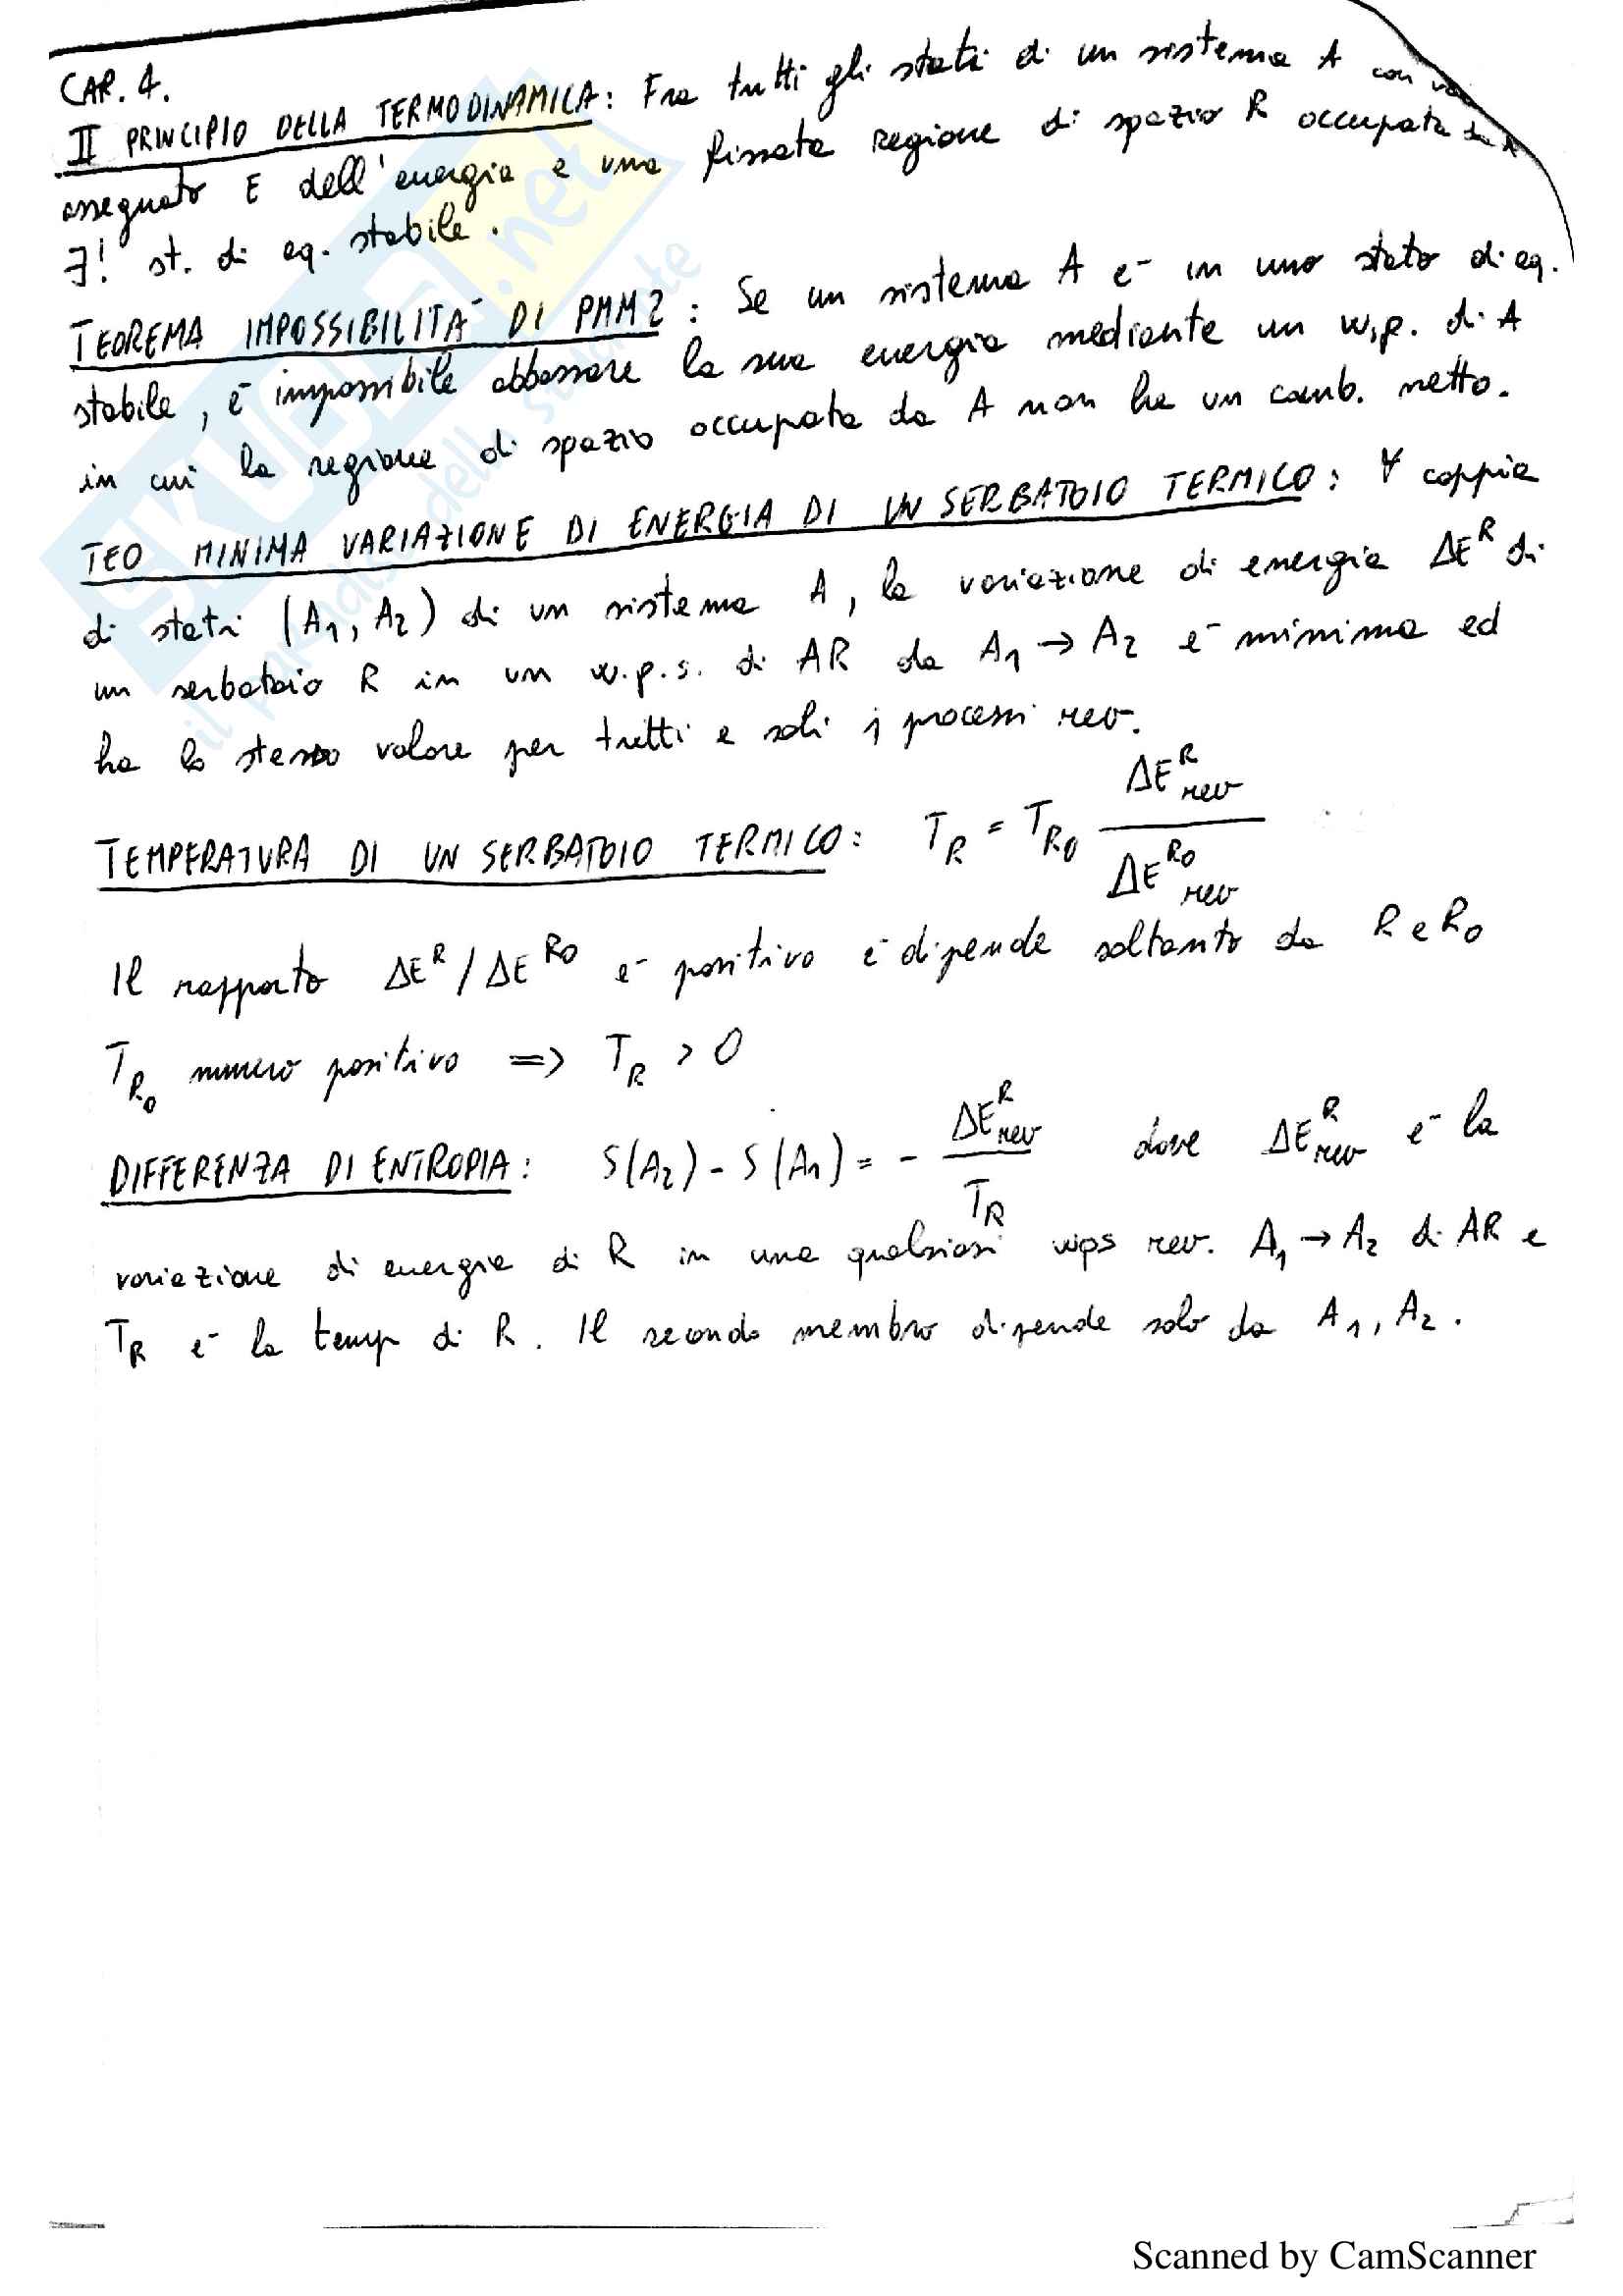 CAP. 4.
II PRINCIPIO DELLA TERMODINAMICA: Fra tutti gli stati di un sistema A con
assegnato E dell'energia e una fissata regione di spazio R occupata da A
∃! st. di eq. stabile.
TEOREMA IMPOSSIBILITÀ DI PMM2: Se un sistema A è in uno stato di eq.
stabile, è impossibile abbassare la sua energia mediante un w.p. di A
in cui la regione di spazio occupata da A non ha un camb. netto.
TEO MINIMA VARIAZIONE DI ENERGIA DI UN SERBATOIO TERMICO: ∀ coppia
di stati (A₁, A₂) di un sistema A, la variazione di energia ΔE^R di
un serbatoio R in un w.p.s. di AR da A₁ → A₂ è minima ed
ha lo stesso valore per tutti e soli i processi rev.
TEMPERATURA DI UN SERBATOIO TERMICO: T_R = T_R0 ΔE^R_rev / ΔE^R0_rev
Il rapporto ΔE^R / ΔE^R0 è positivo e dipende soltanto da R e R₀
T_R0 numero positivo => T_R > 0
DIFFERENZA DI ENTROPIA: S(A₂) - S(A₁) = - ΔE^R_rev / T_R dove ΔE^R_rev è la
variazione di energia di R in una qualsiasi wps rev. A₁ → A₂ di AR e
T_R è la temp di R. Il secondo membro dipende solo da A₁, A₂.
SKUOLA.net
il paradiso dello studente
Scanned by CamScanner